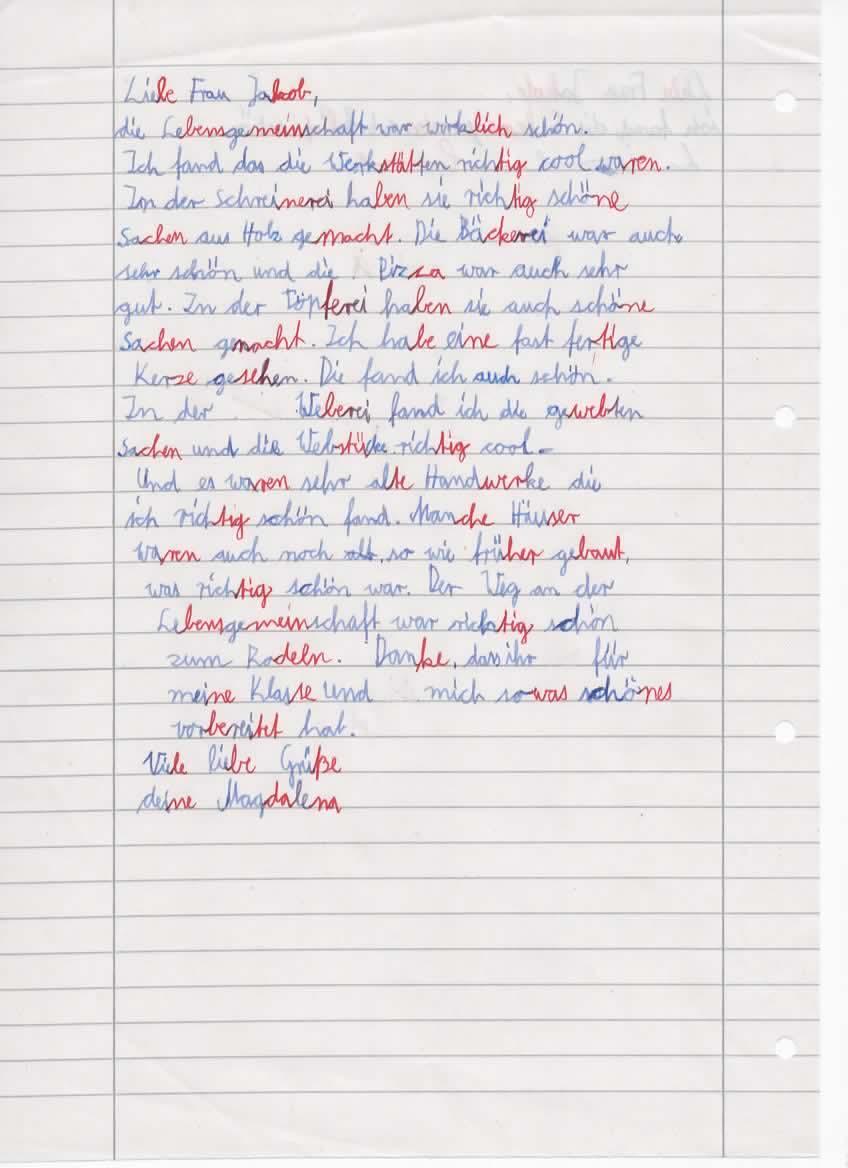 Liebe Frau Jakob,
die Lebensgemeinschaft war wirklich schön.
Ich fand das die Werkstätten richtig cool waren.
In der Schreinerei haben sie richtig schöne
Sachen aus Holz gemacht. Die Bäckerei war auch
sehr schön und die Pizza war auch sehr
gut. In der Töpferei haben sie auch schöne
Sachen gemacht. Ich habe eine fast fertige
Kerze gesehen. Die fand ich auch schön.
In der Weberei fand ich die gewebten
Sachen und die Webstücke richtig cool.
Und es waren sehr alte Handwerke die
ich richtig schön fand. Manche Häuser
waren auch noch alt, so wie früher gebaut,
was richtig schön war. Der Weg an der
Lebensgemeinschaft war richtig schön
zum Radeln. Danke, dass ihr für
meine Klasse und mich sowas schönes
vorbereitet hat.
Viele liebe Grüße
deine Magdalena